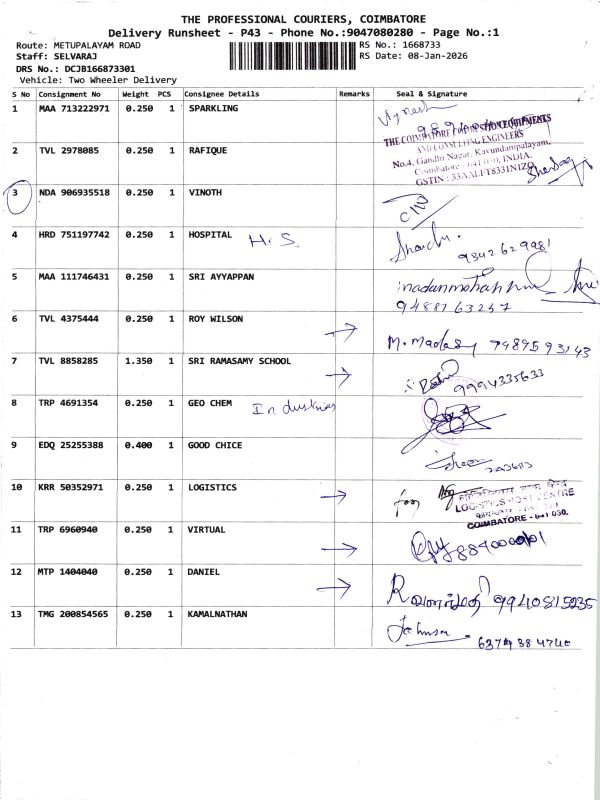 THE PROFESSIONAL COURIERS, COIMBATORE
Delivery Runsheet - P43 - Phone No.:9047080280 - Page No.:1
Route: METUPALAYAM ROAD RS No.: 1668733
Staff: SELVARAJ RS Date: 08-Jan-2026
DRS No.: DCJB166873301
Vehicle: Two Wheeler Delivery
S No Consignment No Weight PCS Consignee Details Remarks Seal & Signature
1 MAA 713222971 0.250 1 SPARKLING Vignesh
THE COIMBATORE
AND CONSULTING ENGINEERS
2 TVL 2978085 0.250 1 RAFIQUE No.4, Gandhi Nagar, Kavundampalayam,
Coimbatore - 641 030, INDIA.
GSTIN : 33AALFT8331N1ZO
3 NDA 906935518 0.250 1 VINOTH
4 HRD 751197742 0.250 1 HOSPITAL H.S
9842629981
5 MAA 111746431 0.250 1 SRI AYYAPPAN
9488763247
6 TVL 4375444 0.250 1 ROY WILSON →
M. Madasy
7 TVL 8858285 1.350 1 SRI RAMASAMY SCHOOL →
9994335633
8 TRP 4691354 0.250 1 GEO CHEM Industries
9 EDQ 25255388 0.400 1 GOOD CHICE
10 KRR 50352971 0.250 1 LOGISTICS → for
LOGISTICS POST CENTRE
COIMBATORE - 641 030.
11 TRP 6960940 0.250 1 VIRTUAL →
12 MTP 1404040 0.250 1 DANIEL →
9940815235
13 TMG 200854565 0.250 1 KAMALNATHAN Johnson
6374984740